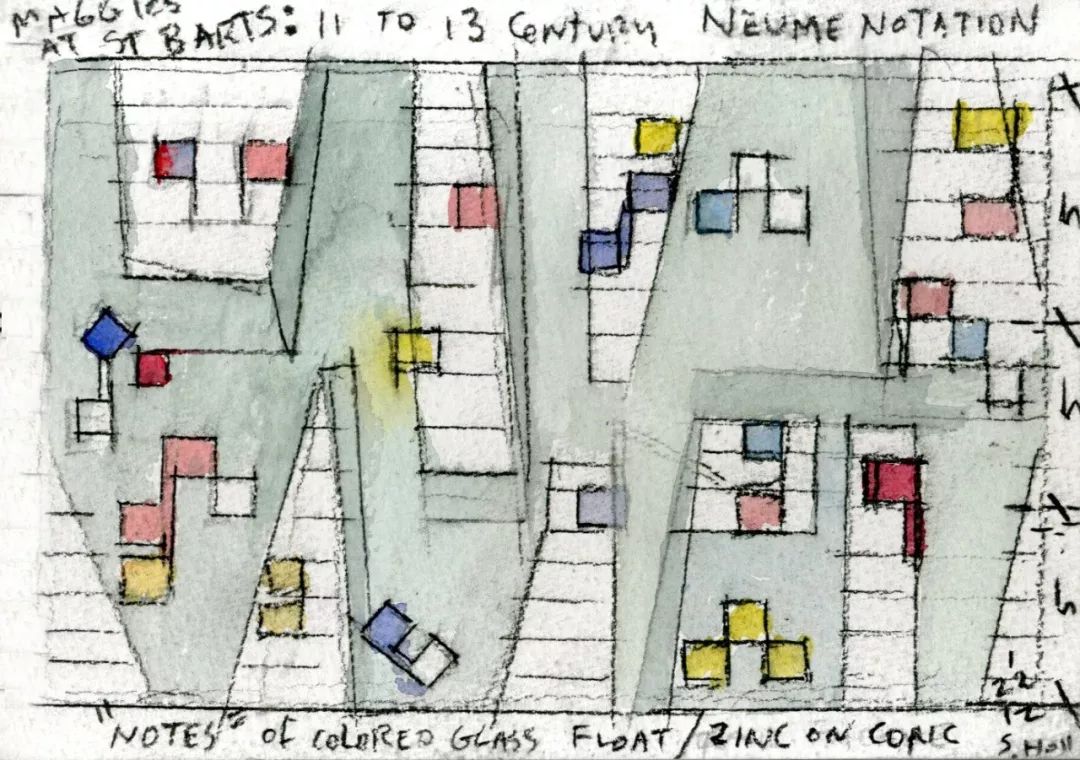 MAGGIES
AT ST BARTS: 11 TO 13 CENTURY NEUME NOTATION
"NOTES" OF COLORED GLASS FLOAT / ZINC ON CONC
S. Holl
1
22
12